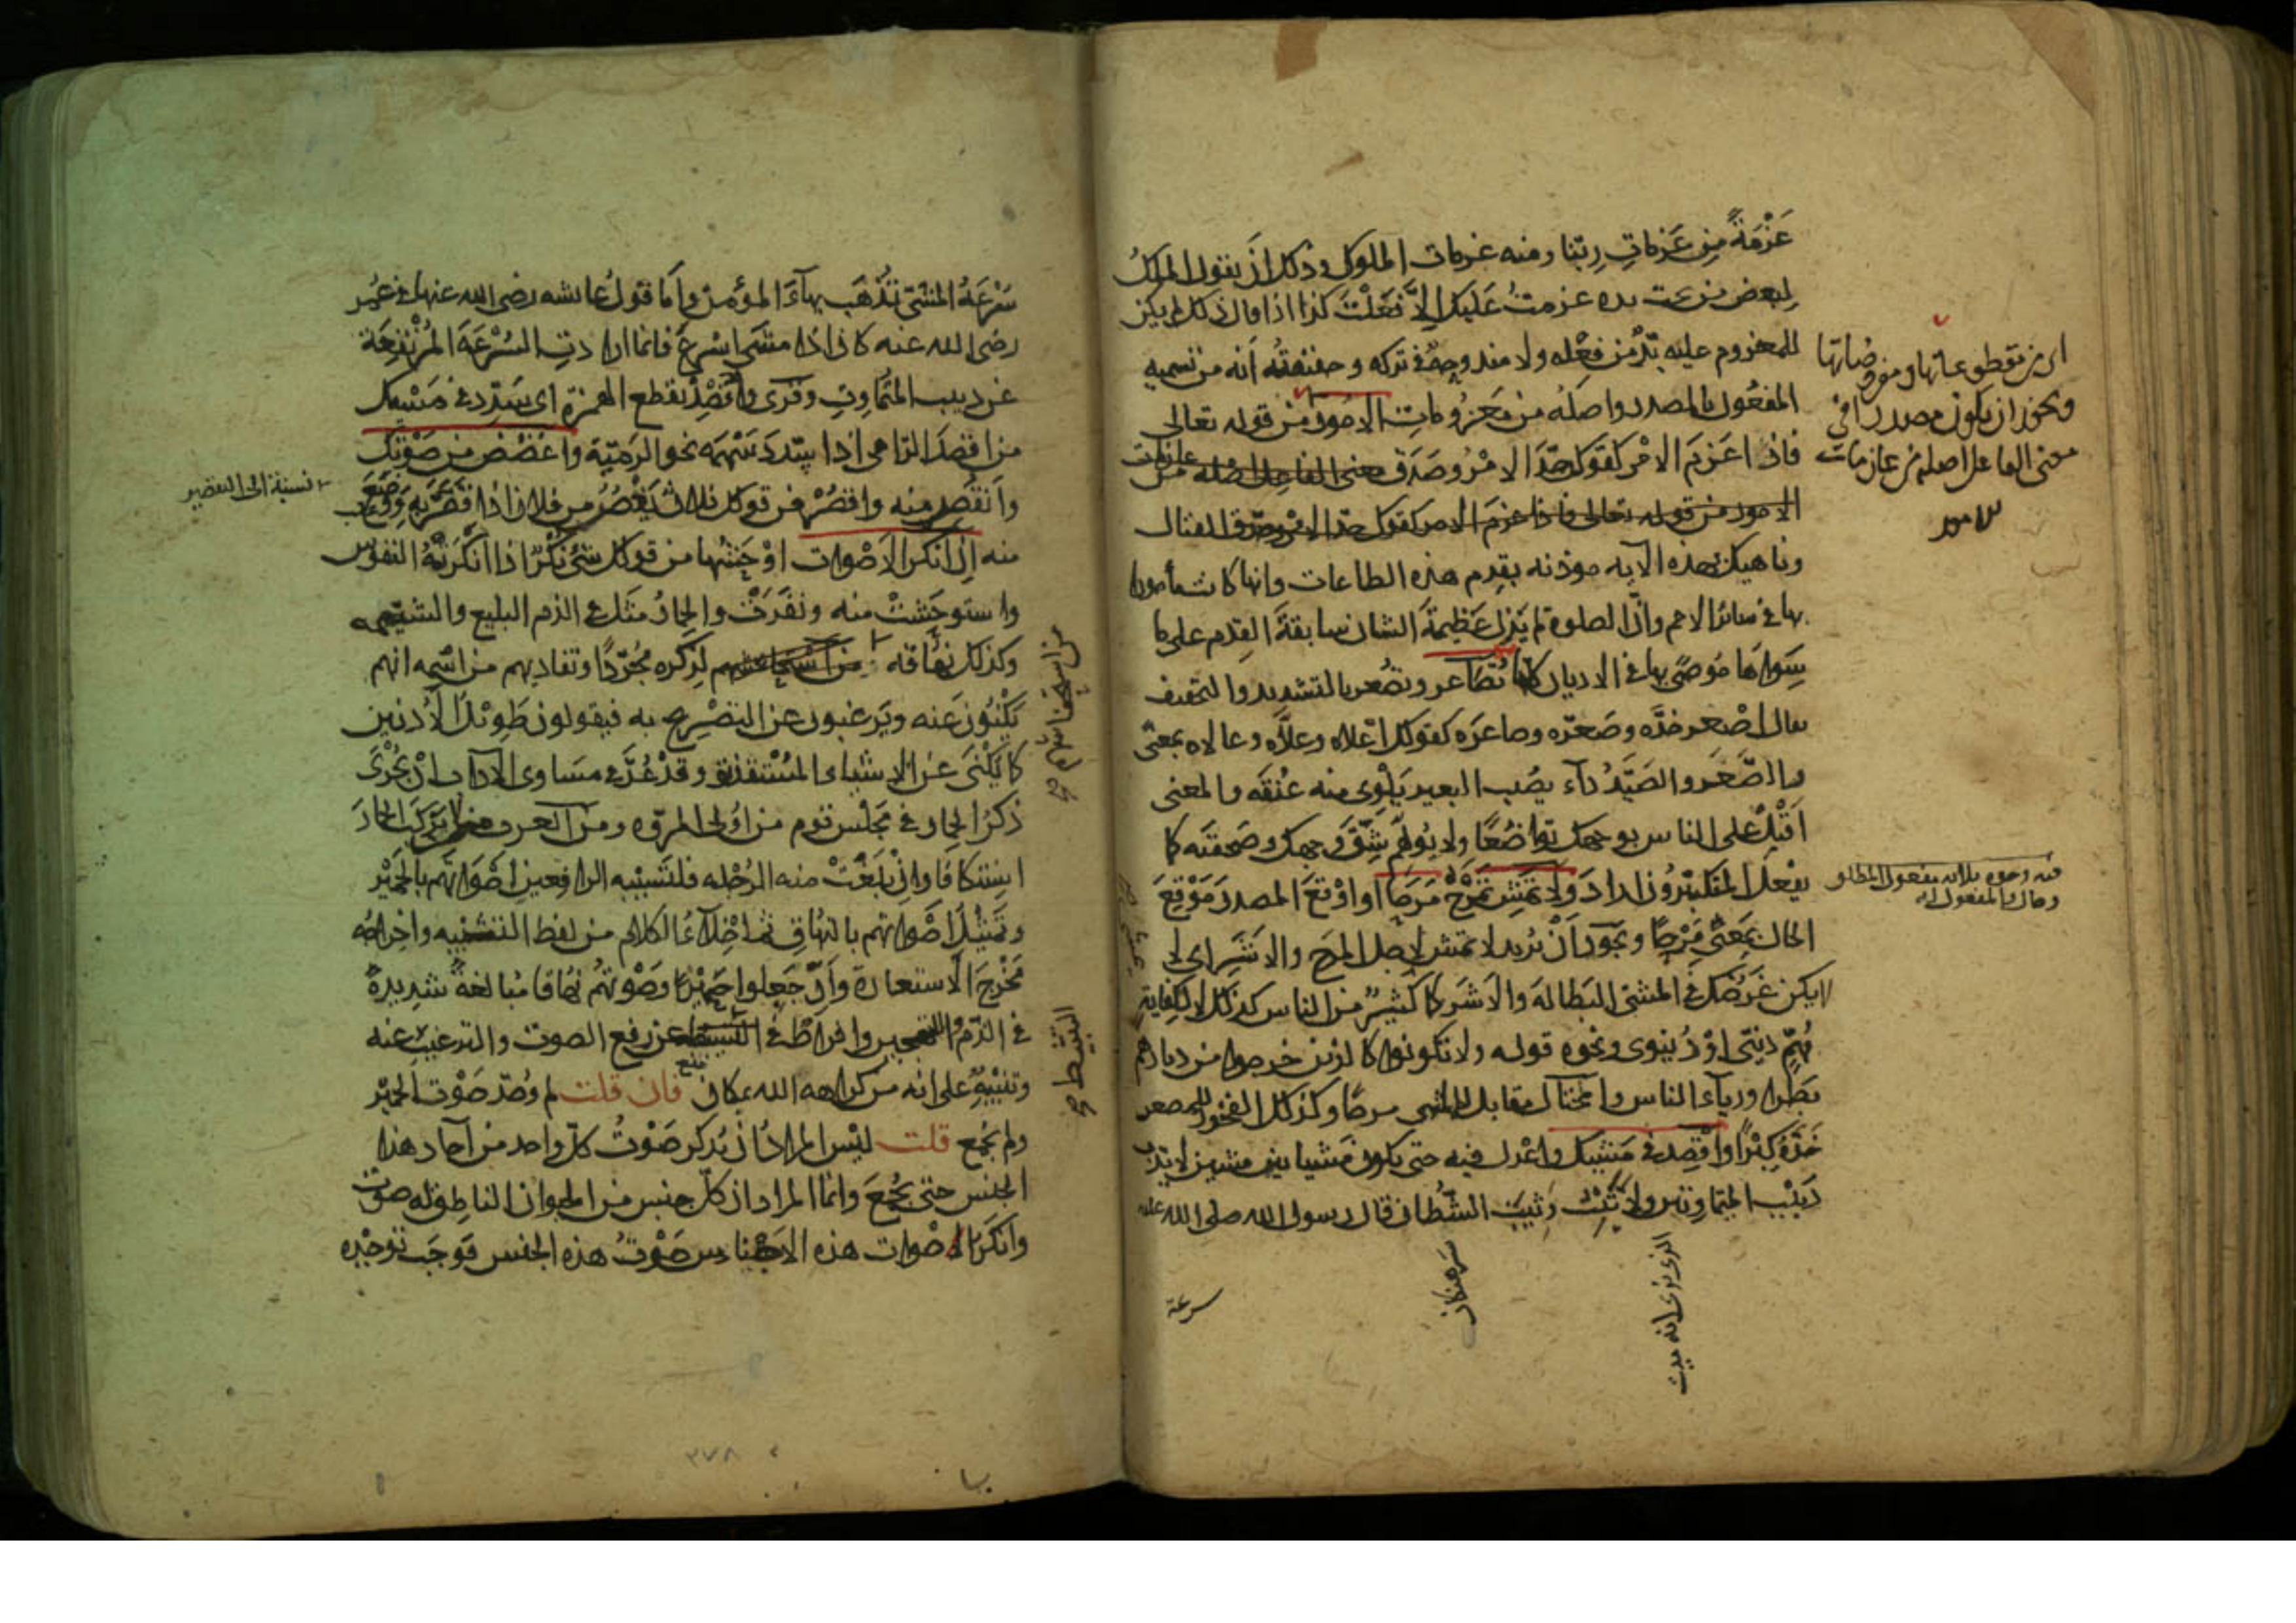 عَزْمَةً مِن عَزَماتِ رَبّنا ومنه عزمات الملوك وذلك أن يقول الملك
لبعض من تحت يده عزمتُ عليك إلّا فعلتَ كذا اذا قال ذلك لم يكن
للمعزوم عليه بُدٌّ من فِعْله ولا مندوحةٌ في تركه وحقيقته أنه من تسمية
المفعُول بالمصدر واصلُه من مَعزُوماتِ الامور من قوله تعالى
فاذا عَزَمَ الامْر كقولك جَدَّ الامْرُ وصَدَق معنى الفاعل اصْله من عازمات
الامور من قوله تعالى فاذا عزم الامر كقولك جدّ الامر وصدق القتال
وناهيك بهذه الآية مؤذنه بقِدم هذه الطاعات وانها كانت مأمورا
بها في سائر الامم وانّ الصلوة لم يَزل عَظِيمةَ الشان سابقةَ القِدم على ما
سِواهَا مُوصًى بها في الاديان كلّها تُصَاعر وتصُعر بالتشديد والتخفيف
يقال اصْعر خدَّه وصَعرّه وصاعَره كقولك اعْلاه وعلّاه وعالاه بمعنى
والصَّعَر والصَيَدُ دآء يصُيب البعير يَلْوِى منه عُنُقَه والمعنى
اَقْبِلْ على الناس بوجهك تواضُعًا ولا تُولّهم شِقَّ وجهك وصَفحتَه كما
يفعل المتكبّرون اراد وَلا تمَشِ تمْرَحُ مَرَحًا او اوْقعَ المصدرَ مَوْقعَ
الحال بمَعنى مَرِحًا ويجوز أنْ يُريد لا تمَش لاجل المرَح والاَشَر اى لا
لايكن غَرَضُك في المَشى البَطالة والاَشر كما كثيرٌ من الناس كذلك لا لكِفاية
مُهِمّ دينىّ اوْ دُنيوى ونحوه قوله ولا تكونوا كالذين خرجوا من ديارهم
بطَرا ورياء الناس والمختال مقابل للماشى مرحًا وكذلك الفخور للمصعر
خَدَّهُ كِبْرًا واقْصِد في مَشيك واعْدل فيه حتى يكون مَشيا بين مشيين لا تدِبّ
دَبيْبَ المتماوتين ولا تَثِبْ وَثيب الشُطّار قال رسول الله صلى الله عليه
ويجوز ان يكون مصدرا في
معنى الفاعل اصله من عازمات
الامور
فيه وجوه ثلاثه مفعول المطلق
وحال والمفعول له
الذى يرى انه ميت
سرهنكان
سرعة
سُرْعَةُ المَشى تُذْهَب بهآءَ المؤمن واَمّا قولُ عايشه رضى الله عنها في عُمر
رضى الله عنه كان اذا مشى اسْرعَ فانما ارادتِ السُّرْعَةَ المُرتفِعَة
عن دبيب المتُماوِتِ وقرى وأقْصِدْ بقطع الهمزه اى سَدّد في مَشيك
من اقصَدَ الرّامى اذا سدّد سَهْمَه نحو الرَميّة واغضُض من صَوْتك
وانقُص منه واقصُرْ من قولك فلان يَغُضُّ من فلان اذا قصَّرَ به وَوَضَعَ
منه إنّ انكر الاَصْوات اوْحَشُها من قولك شئ نُكْر اذا انْكَرَتْهُ النفوس
واستوحَشتْ منه ونفَرَتْ والحِمارُ مثَل في الذم البليغ والشتيمه
وكذلك نهُاقه من استفحاشهم لذِكره مُجرّدًا وتفاديهم من اسْمه انهم
يَكْنُون عنه ويَرغبون عن التصْريح به فيقولون طَويْل الاُذنين
كما يُكْنَى عن الاشياء المُسْتقذره وقدْ عُدَّ في مَسَاوى الآداب انْ يَجْرىَ
ذكرُ الحِمار في مَجْلس قوم من اُولى المروّه ومن العرب من لا يركب الحمارَ
استنكافًا وانْ بلَغتْ منه الرُّجْله فلتَشبيه الرافعين اصْواتَهم بالحَمْيِر
وتمثيل اصْواتهم بالنهُاق ثم اخْلآءُ الكلام من لفظ التشبيه واخراجُه
مَخْرجَ الاستعارة وأنْ جَعِلوا حَمِيْرًا وصَوْتهُم نهُاقا مُبالغةٌ شديدةٌ
في الذّم والتهجين وافراطٌ في التثبيط عن رفع الصوت والترغيب عنه
وتنبيْهٌ على انه من كراهه الله بمكان فان قلت لم وُحّد صَوْت الحَميْر
ولم يجُمع قلت ليْس المرادُ ان يُذكر صَوْتُ كلّ واحد من آحاد هذا
الجنْس حتى يجُمَعَ وانما المراد ان كلّ جنس من الحيوان الناطق له صوْت
وانكَرَ الاصْوات هذه الاجْناس صَوْتُ هذه الجنس فوجَب توحيْده
نسبة الى التقصير
من استفحاشهم صح
التثبيط صح
٣٧٨